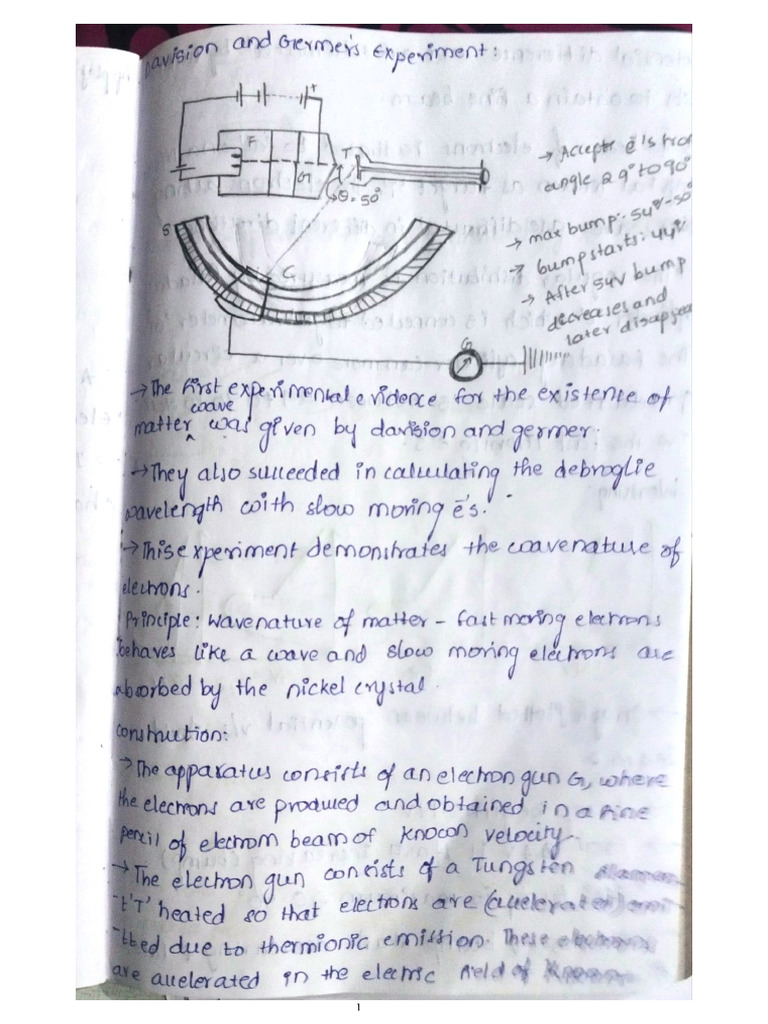 Davision and Germer's Experiment:
+
F
G
T
θ = 50°
S
C
G
→ Accepts ē's from
angle 29° to 90°
→ max bump:- 54V - 50°
→ bump starts: 44V
→ After 54V bump
decreases and
later disappea
→ The first experimental evidence for the existence of
matter wave was given by davision and germer.
→ They also succeeded in calculating the debroglie
wavelength with slow moving ē's.
→ This experiment demonstrates the wave nature of
electrons.
Principle: Wave nature of matter - fast moving electrons
behaves like a wave and slow moving electrons are
absorbed by the nickel crystal.
construction:
→ The apparatus consists of an electron gun G, where
the electrons are produced and obtained in a fine
pencil of electrom beam of known velocity.
→ The electron gun consists of a Tungsten
t 'T' heated so that electrons are (accelerated) emi
-tted due to thermionic emission. These electrons
are accelerated in the electric field of
1